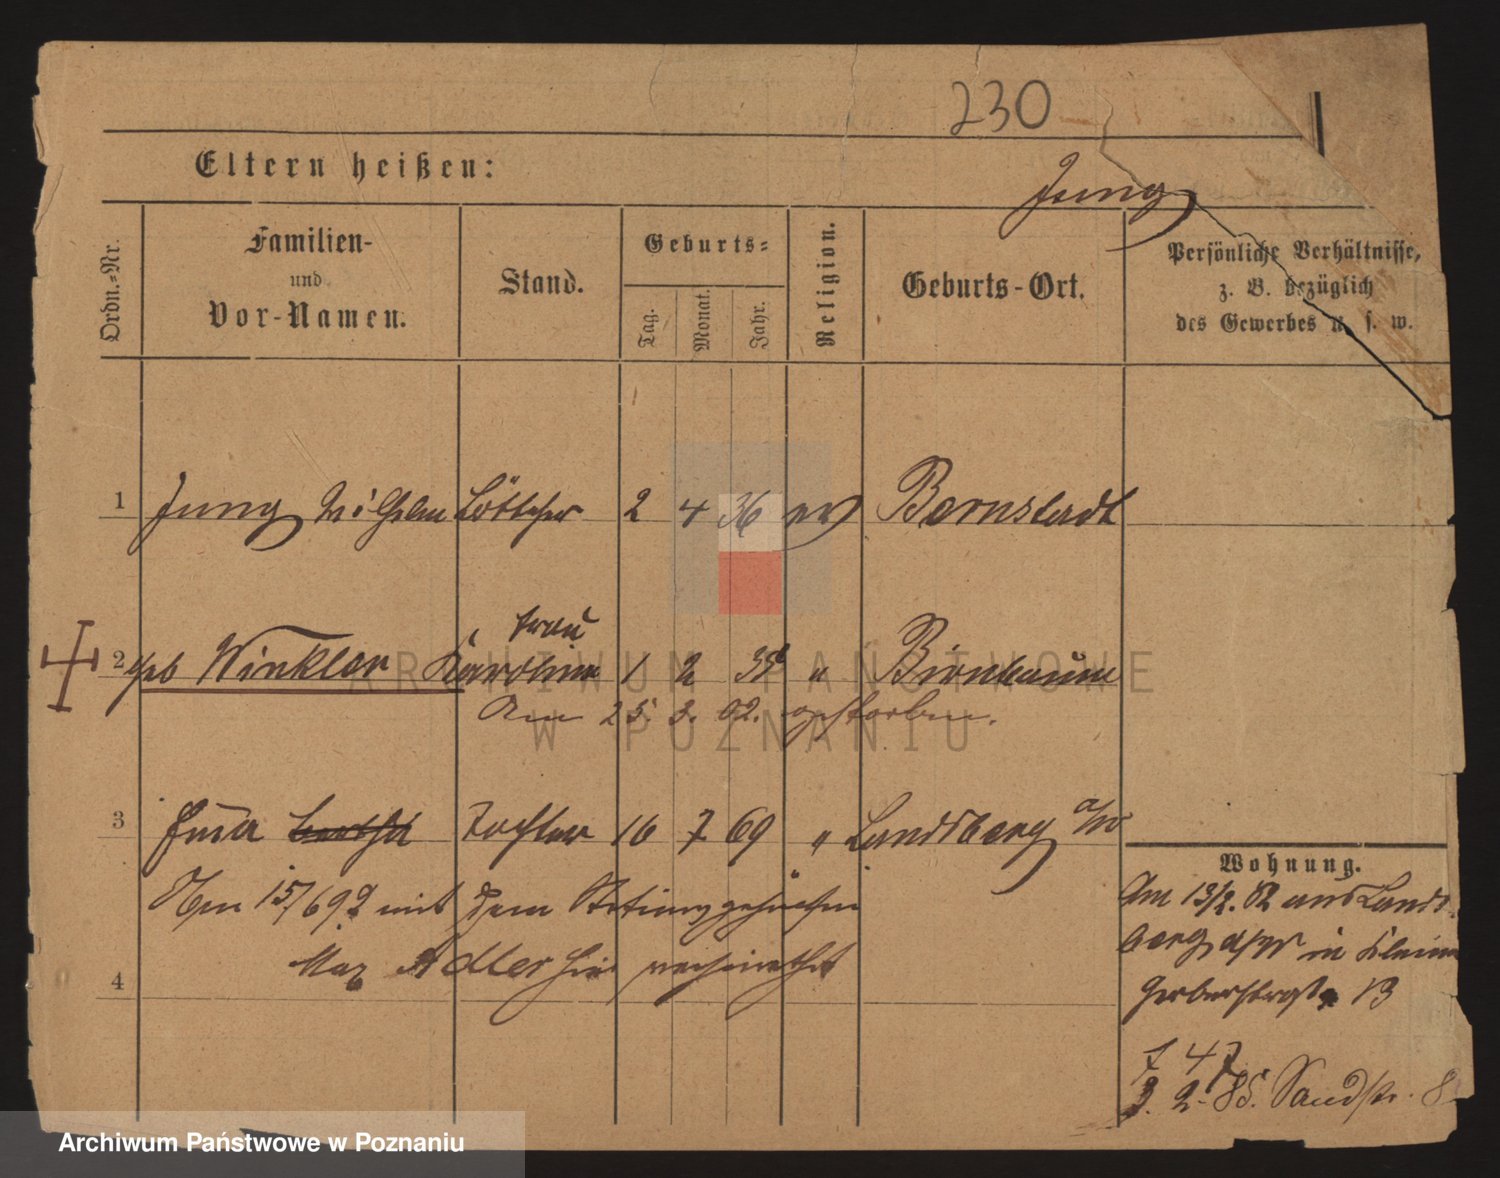 230
Eltern heißen:
Jung
Ordn.-Nr.
Familien-
und
Vor-Namen.
Stand.
Geburts-
Tag.
Monat.
Jahr.
Religion.
Geburts-Ort.
Persönliche Verhältnisse,
z. B. bezüglich
des Gewerbes u. s. w.
1 Jung Wilhelm Böttcher 2 4 36 ev Bernstadt
Frau
2 geb Winkler Karoline 1 2 35 " Birnbaum
Am 25. 3. 02. gestorben.
3 Tochter 16 7 69 " Landsberg a/W
mit dem
Max Adler hier verheirathet
4
Wohnung.
Am 13/2. 82 aus Lands
berg a/W in Kleine
Gerberstraße 13
3. 2. 85. Sandstr. 8
ARCHIWUM PAŃSTWOWE
W POZNANIU
Archiwum Państwowe w Poznaniu